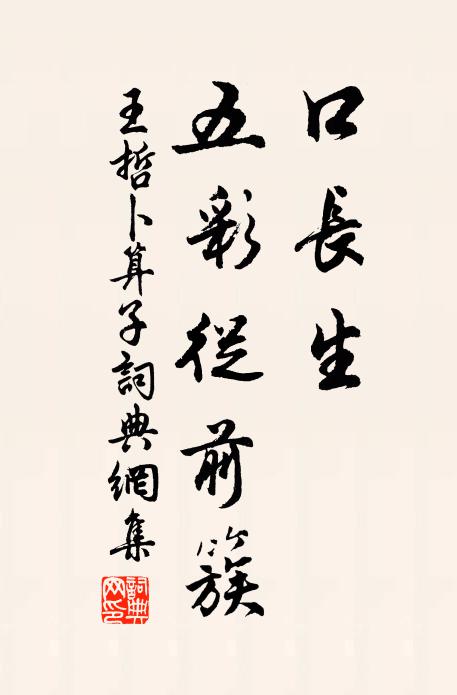 口長生
五彩從前簇
王哲卜算子詞典網集
詞典網印